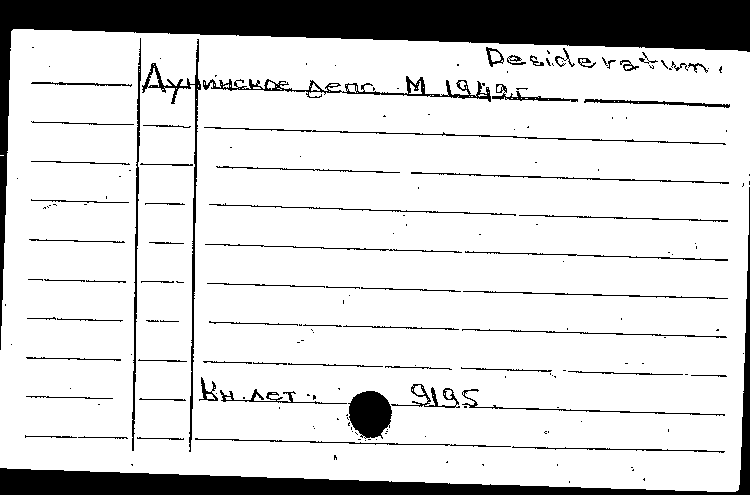 Desideratum.
Дунинское дело М 1949г.
Кн. лет. 9195